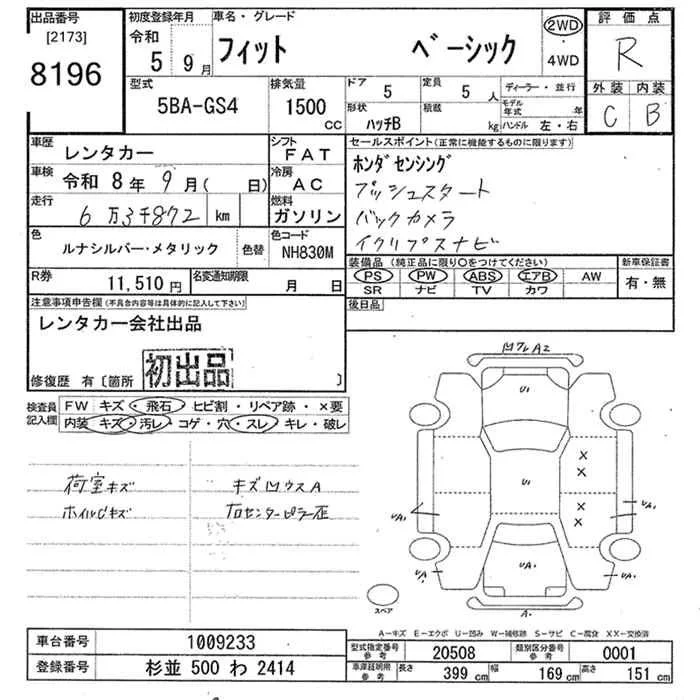 出品番号
[2173]
8196
初度登録年月
令和
5 9 月
車名・グレード
フィット ベーシック
2WD
・
4WD
評価点
R
型式
5BA-GS4
排気量
1500
CC
ドア
5
定員
5 人
ディーラー・並行
形状
ハッチB
積載
kg
モデル年式 年
ハンドル 左・右
外装 内装
C B
車歴
レンタカー
シフト
FAT
車検
令和 8 年 9 月( 日)
冷房
AC
走行
6 万3千872 km
燃料
ガソリン
色
ルナシルバー・メタリック
色替
色コード
NH830M
R券
11,510 円
名変通知期限
月 日
セールスポイント(正常に機能するものに限ります)
ホンダセンシング
プッシュスタート
バックカメラ
イクリプスナビ
装備品(純正品に限り○をつけてください)
PS PW ABS エアB AW
SR ナビ TV カワ
新車保証書
有・無
後日品
注意事項申告欄(不具合内容等は具体的に記入して下さい)
レンタカー会社出品
初出品
修復歴 有〔箇所 〕
検査員記入欄
FW キズ・飛石・ヒビ割・リペア跡・×要
内装 キズ・汚レ・コゲ・穴・スレ・キレ・破レ
荷室キズ
キズ凹ウスA
ホイルCキズ
右センターピラー歪
凹ワレA2
U1
U1
UA1
UA1
UA1
UA1
UA1
A1
スペア
A−キズ E−エクボ U−凹み W−補修跡 S−サビ C−腐食 XX−交換済
車台番号
1009233
登録番号
杉並 500 わ 2414
型式指定番号
参考
20508
類別区分番号
参考
0001
車庫証明用
参考
長さ
399 cm
幅
169 cm
高さ
151 cm